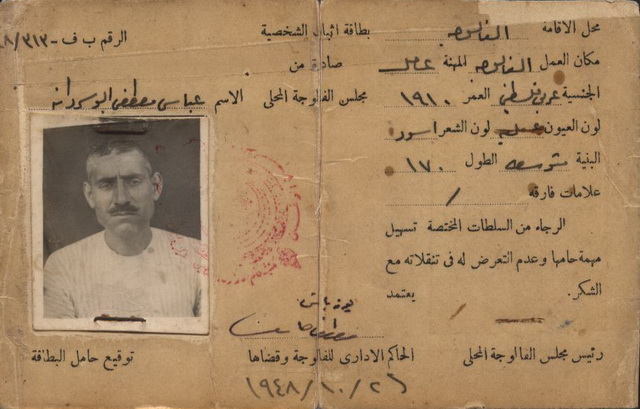 بطاقة اثبات الشخصية
الرقم ب ف - ٨/٣١٣
صادرة من
مجلس الفالوجة المحلى
الاسم عباس مصطفى
محل الاقامة الفالوجه
مكان العمل الفالوجه المهنة عامل
الجنسية عربى فلسطينى العمر ١٩١٠
لون العيون عسليه لون الشعر اسود
البنية متوسطه الطول ١٧٠
علامات فارقه /
الرجاء من السلطات المختصة تسهيل
مهمة حاملها وعدم التعرض له فى تنقلاته مع
الشكر.
يعتمد
رئيس مجلس الفالوجة المحلى
الحاكم الادارى للفالوجة وقضاها
توقيع حامل البطاقة
١٩٤٨/١٠/٢١